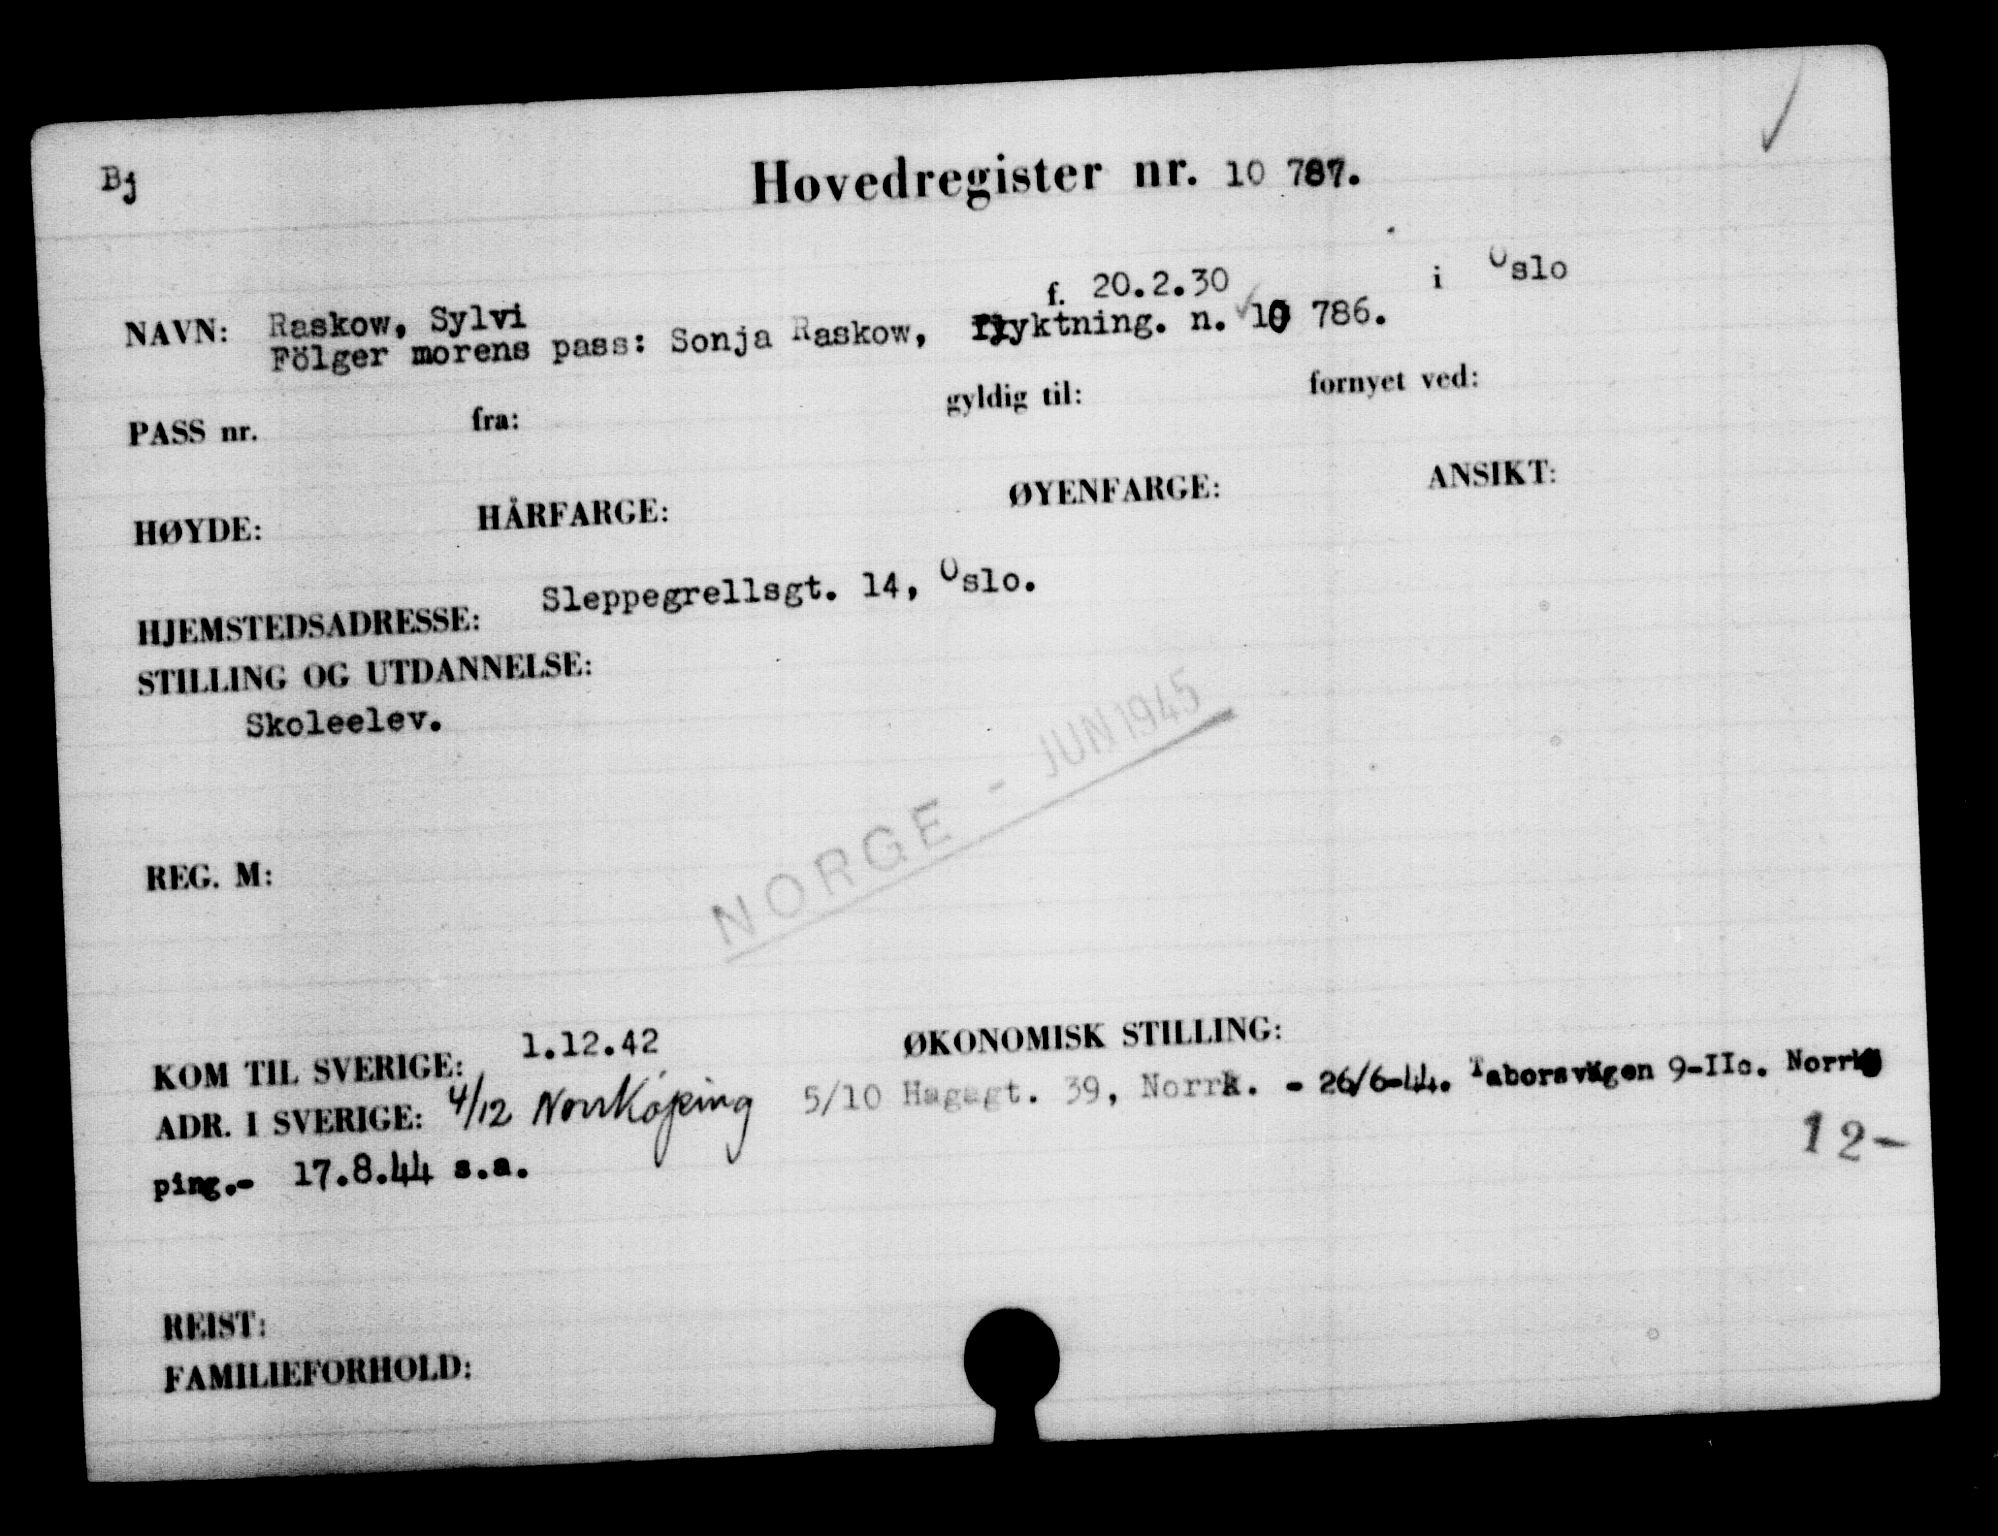 Bj
Hovedregister nr. 10 787.
f. 20.2.30 i Oslo
NAVN: Raskow, Sylvi
Fölger morens pass: Sonja Raskow, flyktning. n. 10 786.
PASS nr. fra: gyldig til: fornyet ved:
HØYDE: HÅRFARGE: ØYENFARGE: ANSIKT:
HJEMSTEDSADRESSE: Sleppegrellsgt. 14, Oslo.
STILLING OG UTDANNELSE:
Skoleelev.
NORGE - JUN 1945
REG. M:
KOM TIL SVERIGE: 1.12.42 ØKONOMISK STILLING:
ADR. I SVERIGE: 4/12 Norrköping 5/10 Hagagt. 39, Norrk. - 26/6-44. Taborsvägen 9-IIc. Norrkö
ping.- 17.8.44 s.a.
12-
REIST:
FAMILIEFORHOLD: